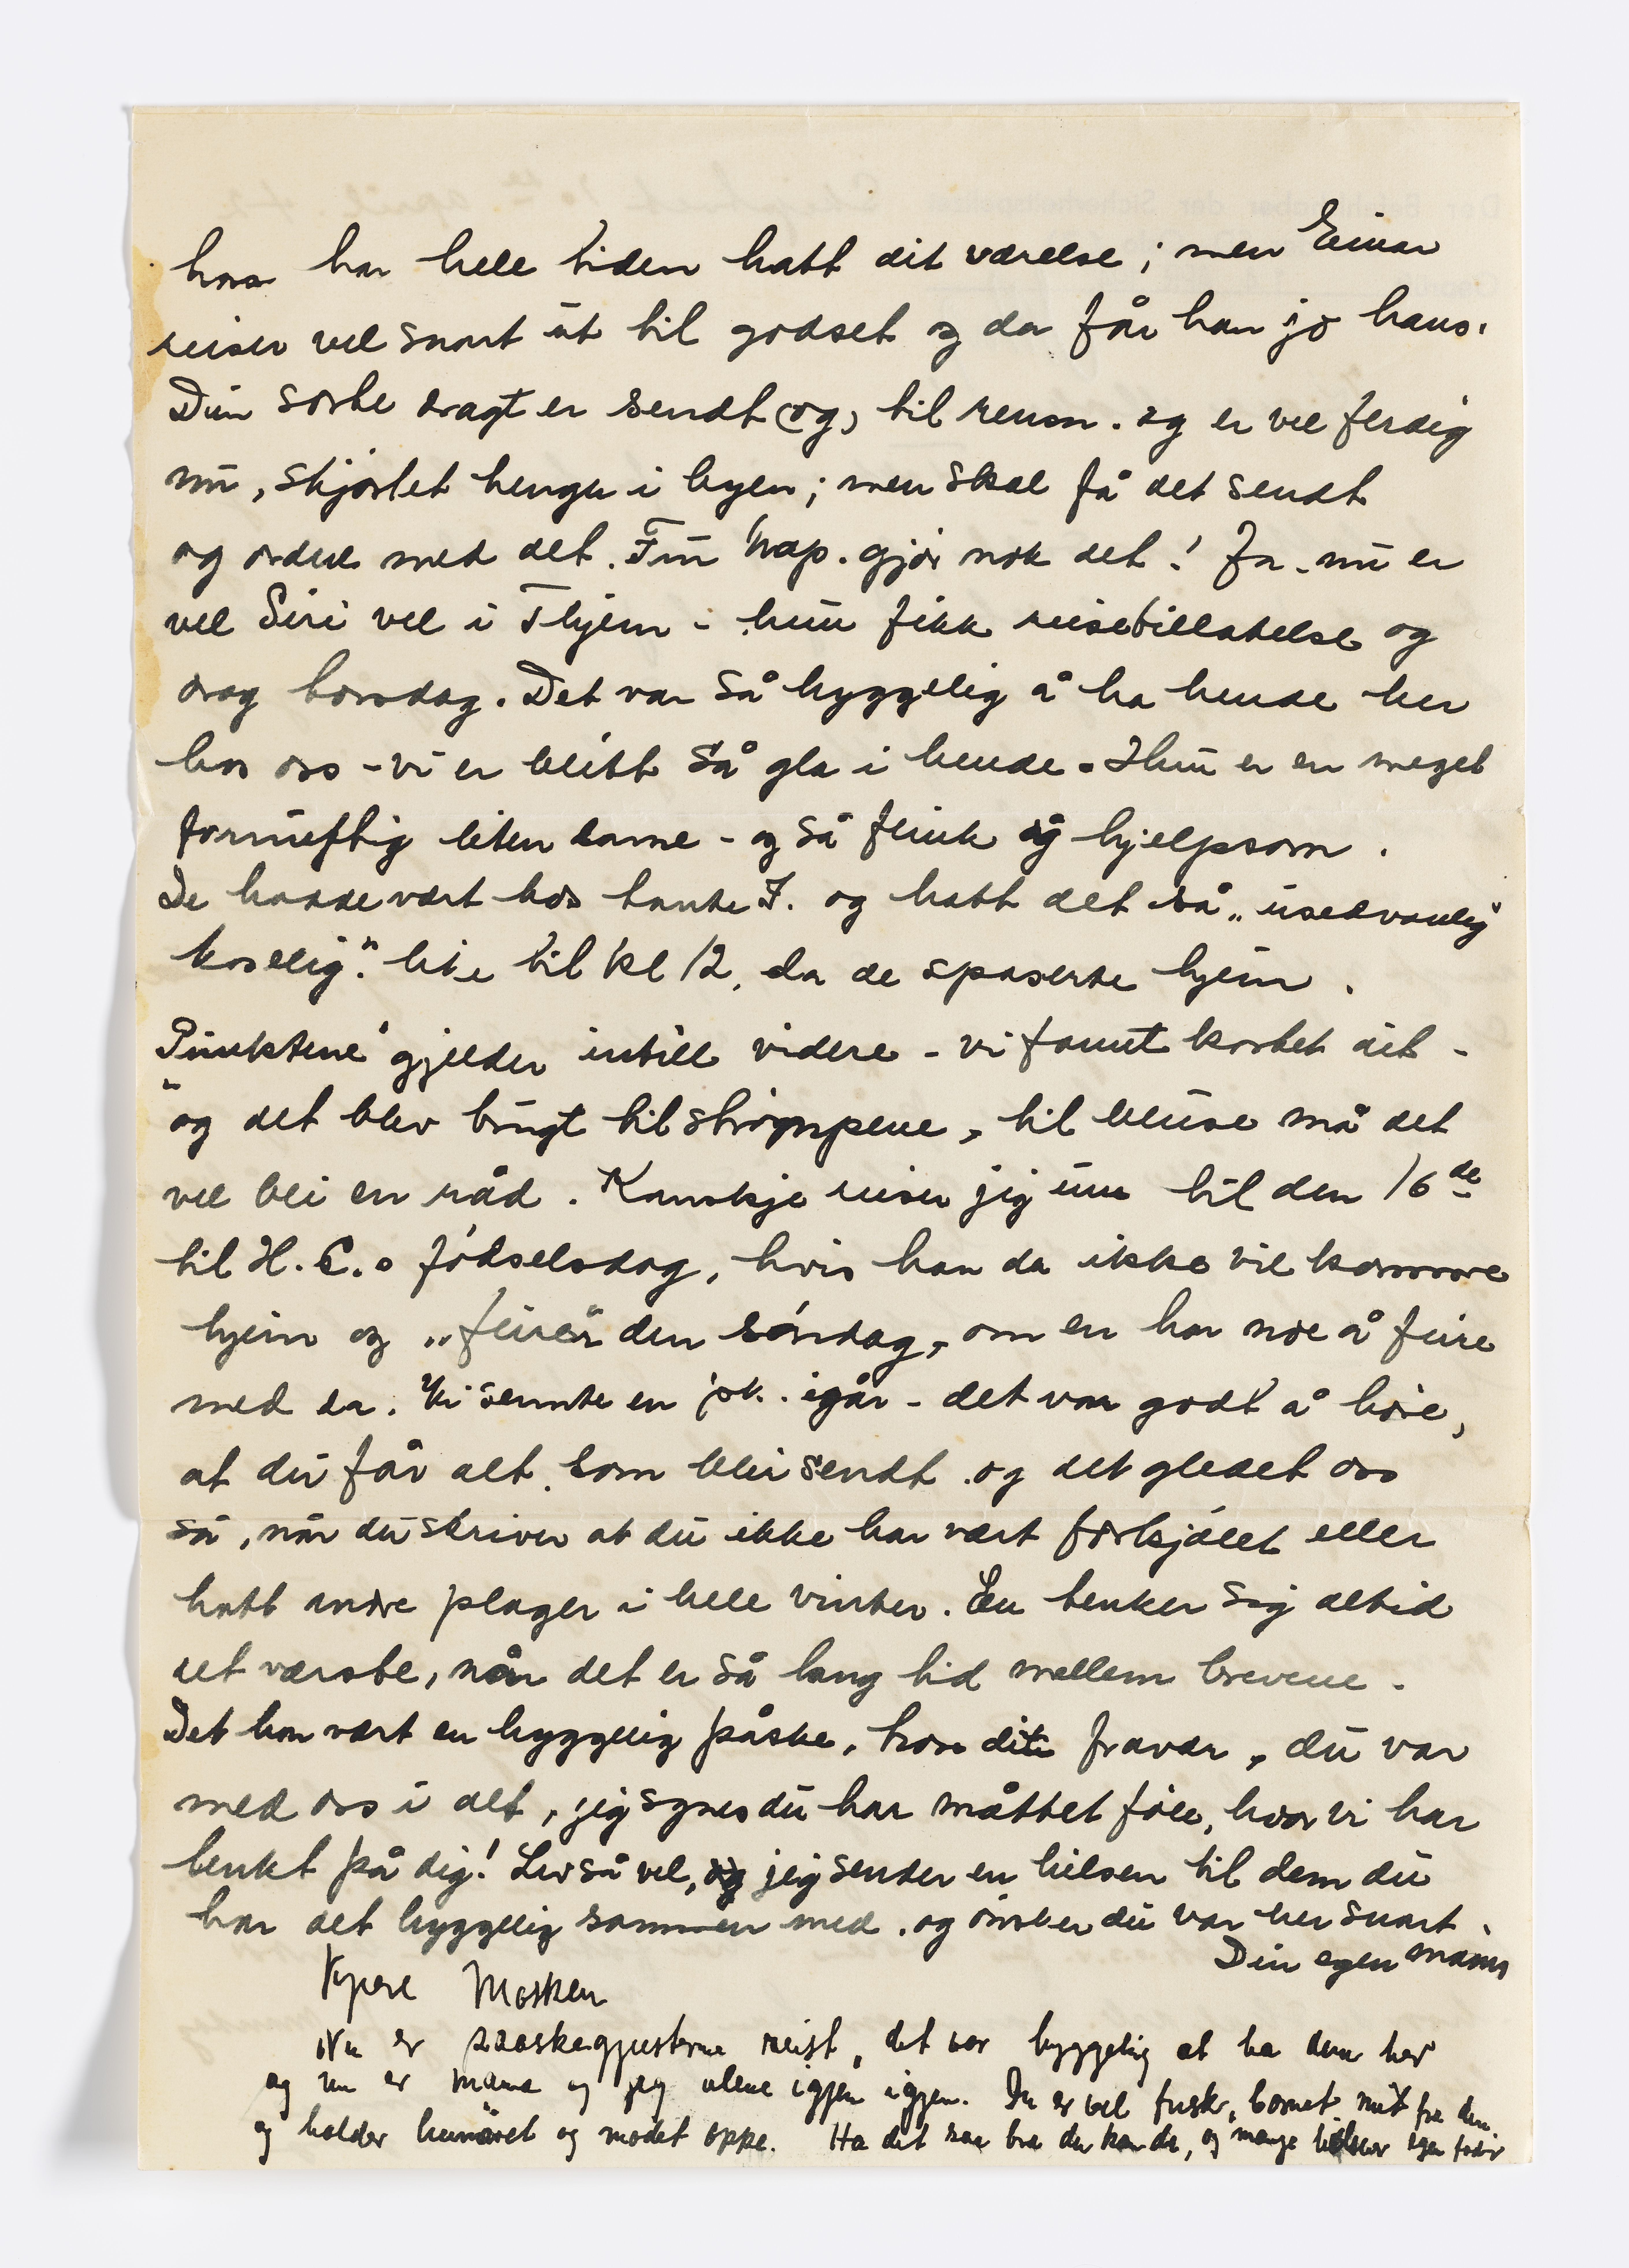 han har hele tiden hatt dit værelse; men Einar
reiser vel snart ut til godset og da får han jo hans.
Din sorte dragt er sendt (og) til rensn. og er vel ferdig
nu, skjørtet henger i byen; men skal få det sendt
og ordne med det. Fru Nap. gjør nok det! Ja, nu er
vel Siri vel i Thjem - hun fikk reisetillatelse og
drog torsdag. Det var så hyggelig å ha hende her
hos oss - vi er blitt så gla i hende. Hun er en meget
fornuftig liten dame - og så flink og hjelpsom.
De hadde vært hos tante I. og hatt det så „usedvanlig
koselig". like til kl 12, da de spaserte hjem.
„Punktene" gjelder intill videre - vi fannt kortet dit -
og det blev brugt til strømpene, til bluse må det
vel bli en råd. Kanskje reiser jeg inn til den 16de
til H. C.s fødselsdag, hvis han da ikke vil komme
hjem og „feire" den søndag, om en har noe å feire
med da. Vi sennte en pk. igår - det var godt å høre,
at du får alt som blir sendt og det gledet oss
så, når du skriver at du ikke har vært forkjølet eller
hatt andre plager i hele vinter. En tenker sig altid
det værste, når det er så lang tid mellem brevene.
Det har vært en hyggelig påske, tross ditt fravær, du var
med oss i alt, jeg synes du har måttet føle, hvor vi har
tenkt på dig! Lev så vel, og jeg sender en hilsen til dem du
har det hyggelig sammen med og ønsker du var her snart.
Din egen mama
Kjære Mosken
Nu er paaskegjesterne reist, det var hyggelig at ha dem her
og nu er mama og jeg alene igjen igjen. Du er vel frisk, barnet mit fra den
og holder humøret og modet oppe. Ha det saa bra du kan da, og mange hilsener egen fadir